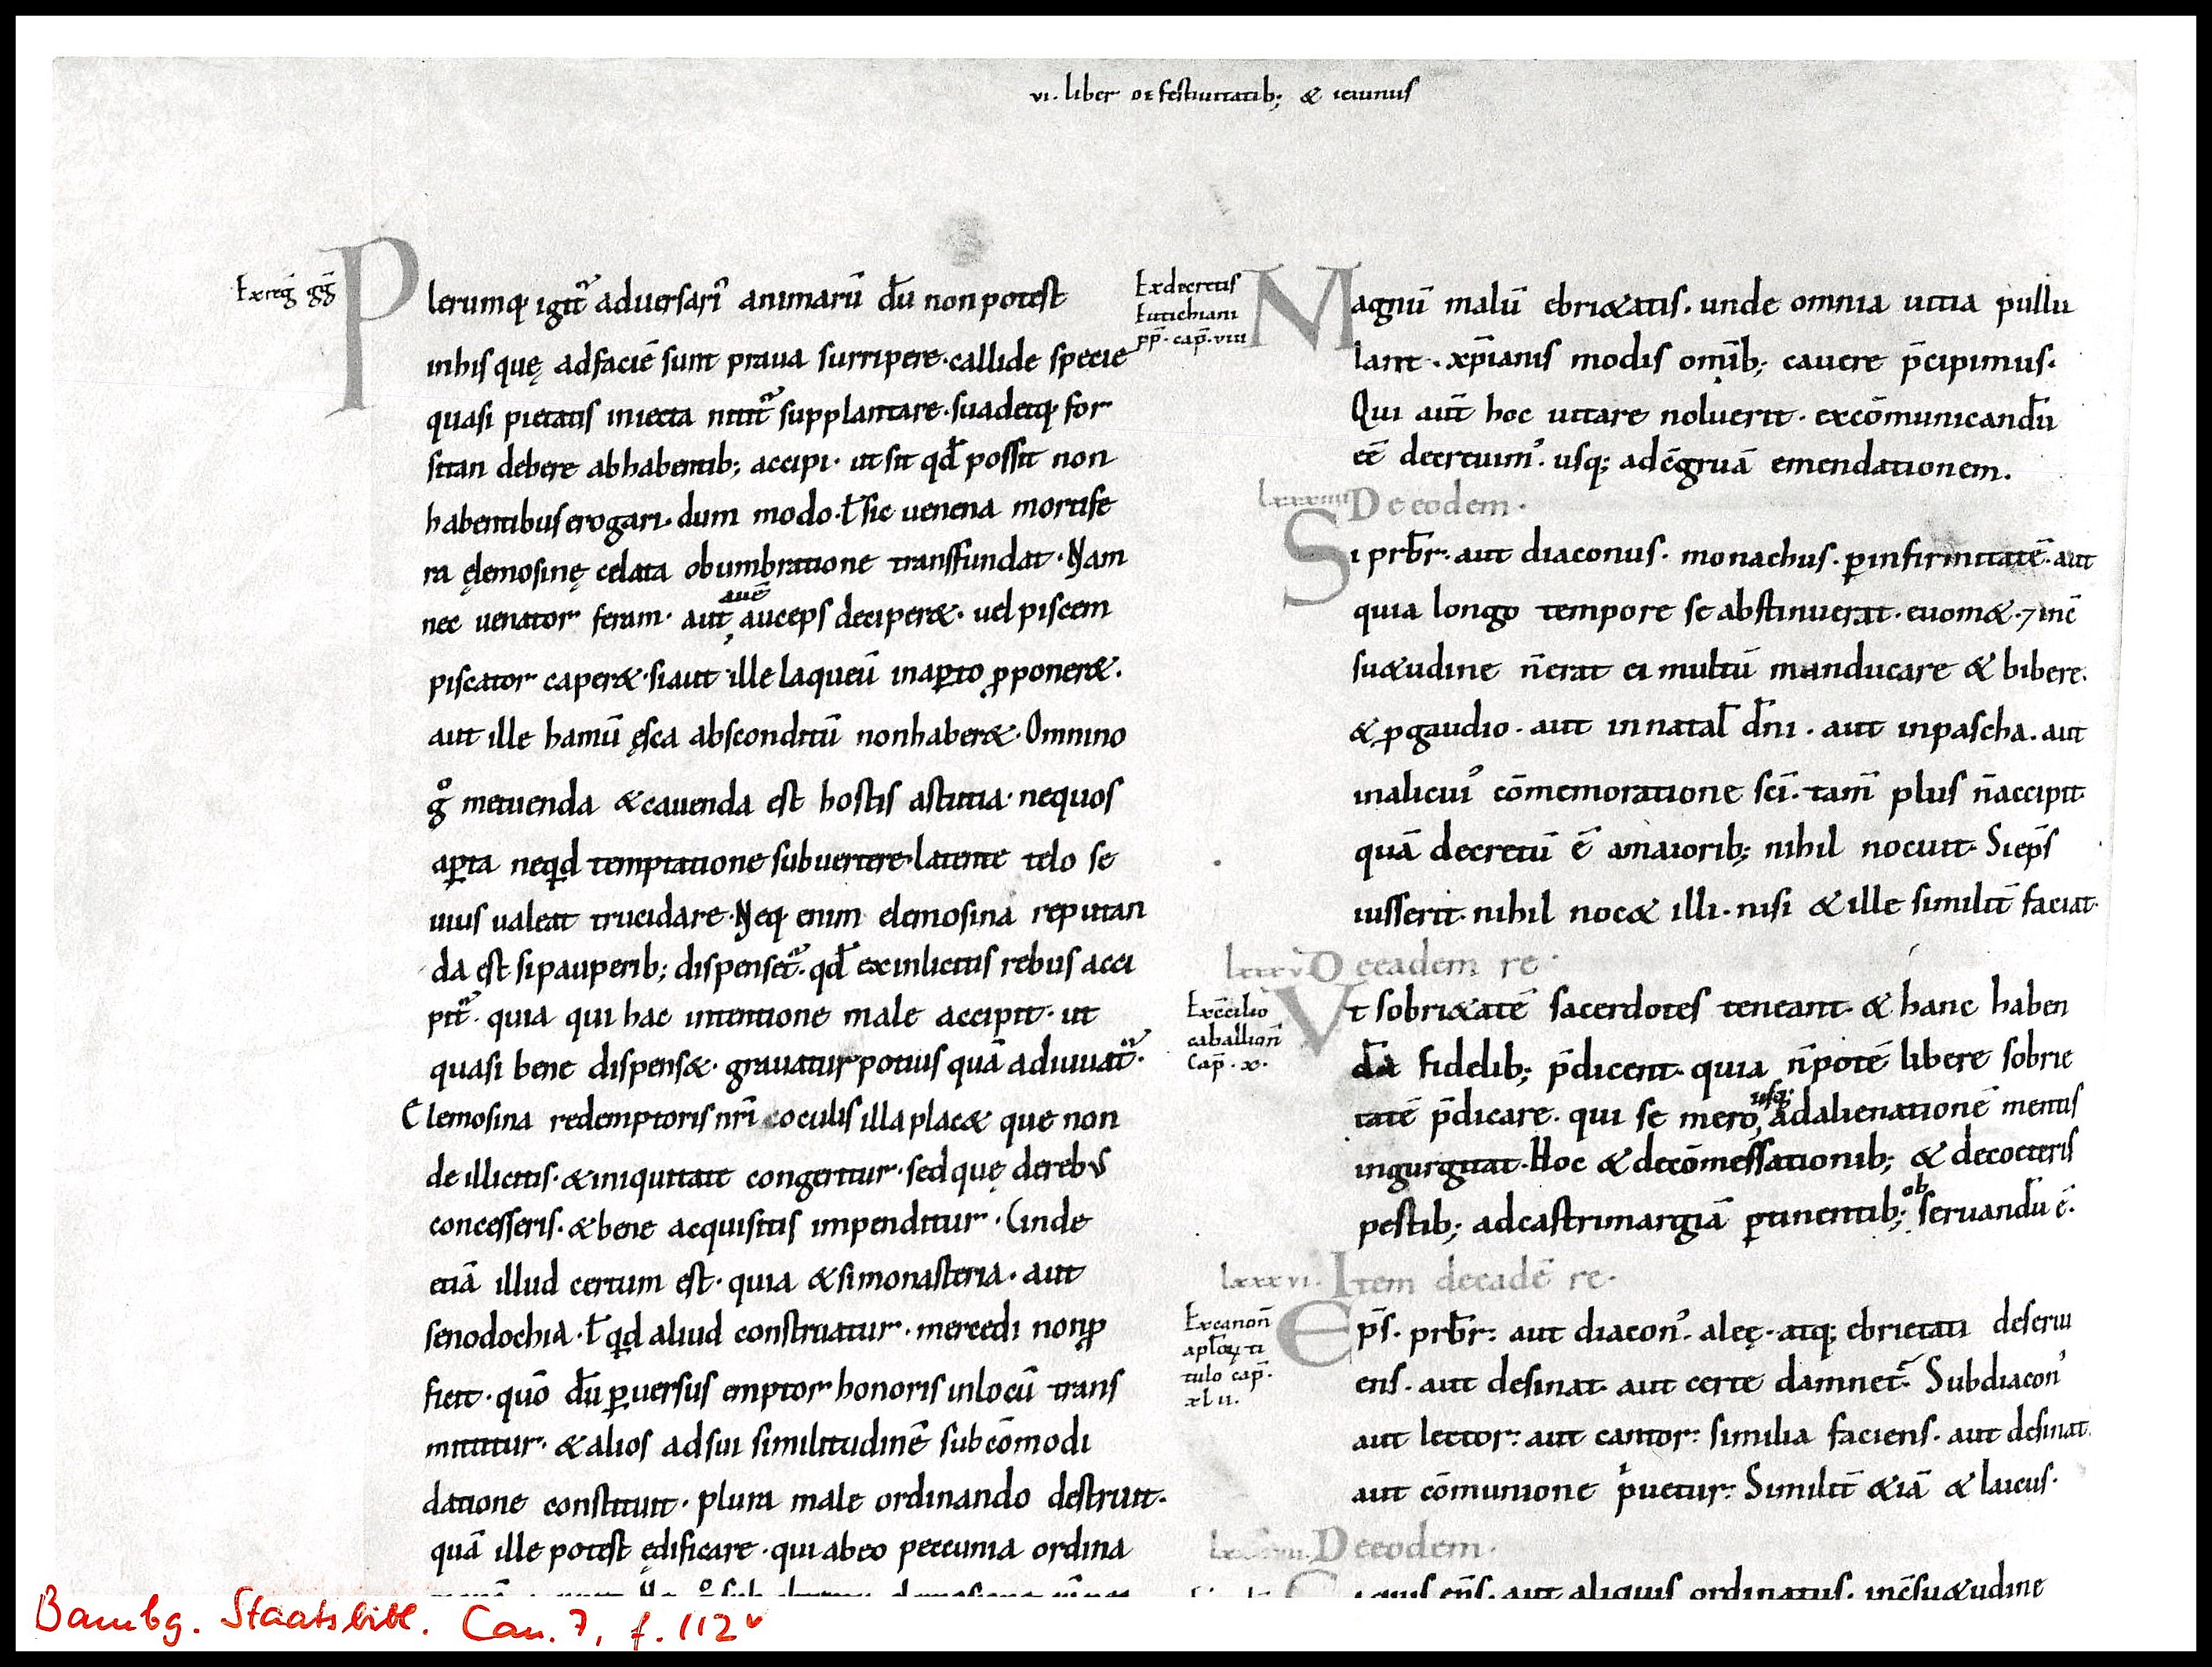 vi. liber de festiuitatib; & ieiuniis
Ex reḡ gḡ
Plerumq; igit᷑ aduersari᷑ animarū dū non potest
in his quę ad faciē sunt praua surripere · callide specie
quasi pietatis iniecta nitit᷑ supplantare · suadetq; for
sitan debere ab habentib; accipi · ut sit qđ possit non
habentibus erogari · dum modo · ł sic uenena mortife
ra ęlemosinę celata obumbratione transfundat · Nam
nec uenator feram · aut auē auceps deciper& · uel piscem
piscator caper& · si aut ille laqueū in aꝑto ꝓponer& ·
aut ille hamū ęsca absconditū non haber& · Omnino
gͦ metuenda & cauenda est hostis astutia · ne quos
aꝑta neqđ temptatione subuertere · latente telo se
uius ualeat trucidare · Neq; enim elemosina reputan
da est si pauperib; dispenset᷑ · qđ ex inlicitis rebus acci
pit᷑ · quia qui hac intentione male accipit · ut
quasi bene dispens& · grauatur potius quā adiuuat᷑ ·
Elemosina redemptoris nr̄i oculis illa plac& que non
de illicitis · & iniquitate congeritur · sed quę de rebus
concesseris · & bene acquisitis impenditur · Unde
etiā illud certum est · quia & si monasteria · aut
senodochia · ł qđ aliud construatur · mercedi non ꝓ
ficit · quō dū ꝑuersus emptor honoris in locū trans
mittitur · & alios ad sui similitudinē sub cōmodi
datione constituit · plura male ordinando destruit ·
quā ille potest ędificare · qui ab eo peccunia ordina
Ex decretis
Eutichiani
pp̄ · cap̄ · viii
Magnū malū ebri&atis · unde omnia uitia pullu
lant · xp̄ianis modis om̄ib; cauere p̄cipimus ·
Qui aut̄ hoc uitare noluerit · excōmunicandū
eē decreuim᷒ · usq; ad cn̄gruā emendationem.
lxxxiiii De eodem ·
Si prb̄r · aut diaconus · monachus · ꝑ infirmitatē · aut
quia longo tempore se abstinuerat · euom& · ⁊ in c̄
su&udine n̄ erat ei multū manducare & bibere ·
& ꝓ gaudio · aut in natał dn̄i · aut in pascha · aut
in alicui᷒ cōmemoratione sc̄i · tam̄ plus n̄ accipit
quā decretū ē a maiorib; nihil nocuit · Si ep̄s
iusserit · nihil noc& illi · nisi & ille similit̄ faciat ·
lxxxv De eadem re ·
Ex c̄cilio
caballion̄
Cap̄ · x ·
Vt sobri&atē sacerdotes teneant · & hanc haben
dā fidelib; p̄dicent · quia n̄ potē libere sobrie
tatē p̄dicare · qui se mero usq; ad alienationē mentis
ingurgitat · Hoc & de cōmessationib; & de ceteris
pestib; ad castrimargiā ꝑtinentib; obseruandū ē ·
lxxxvi · Item de eadē re ·
Ex canon̄
apłoꝝ ti
tulo cap̄ ·
xlii ·
Ep̄s · prb̄r : aut diacon᷒ · aleę · atq; ebrietati deserui
ens · aut desinat · aut certe damnet᷑ · Subdiacon᷒
aut lector : aut cantor : similia faciens · aut desinat
aut cōmunione priuetur : Similit̄ &iā & laicus ·
De eodem ·
quis ep̄s · aut aliquis ordinatus · in c̄su&udine
Bambg. Staatsbibl. Can. 7, f. 112v